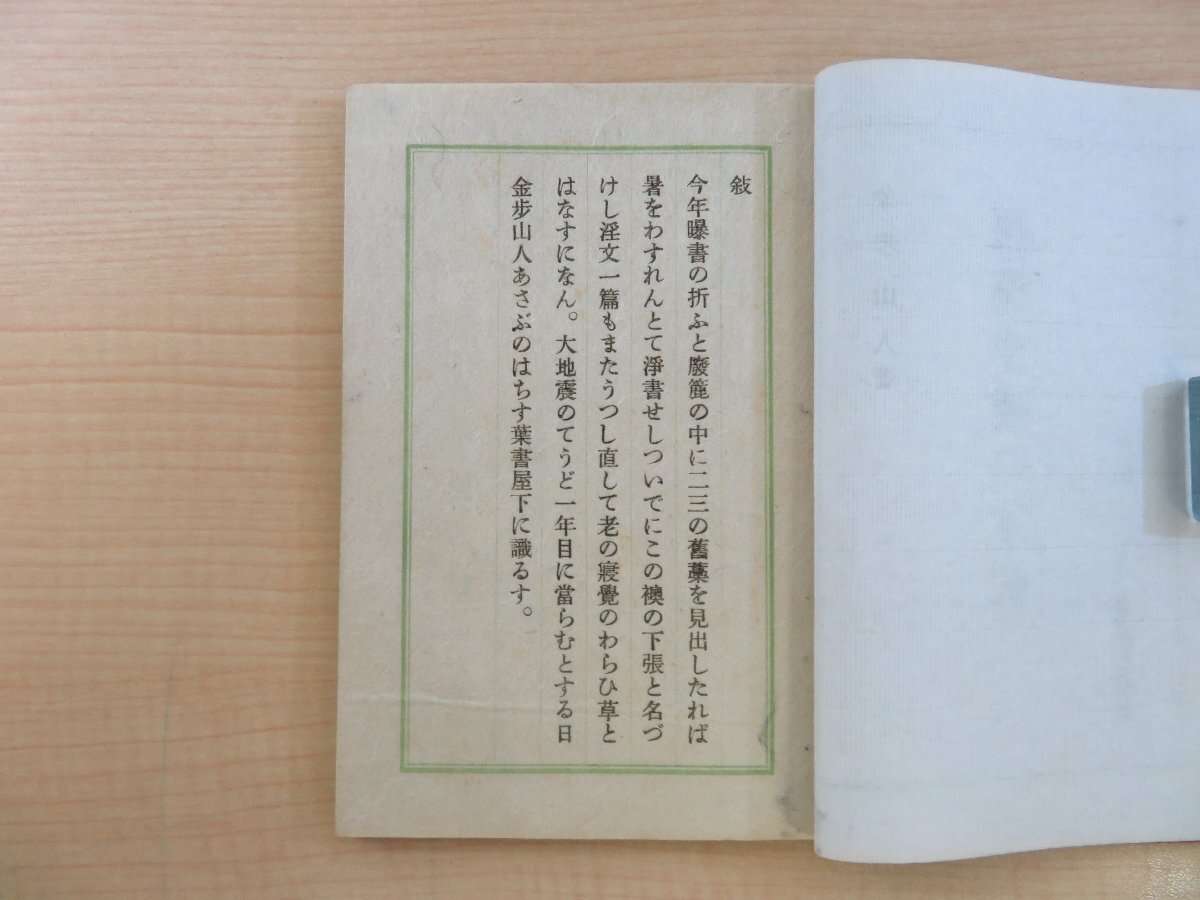 敍
今年曝書の折ふと廢簏の中に二三の舊藁を見出したれば
暑をわすれんとて淨書せしついでにこの襖の下張と名づ
けし淫文一篇もまたうつし直して老の寢覺のわらひ草と
はなすになん。大地震のてうど一年目に當らむとする日
金步山人あさぶのはちす葉書屋下に識るす。